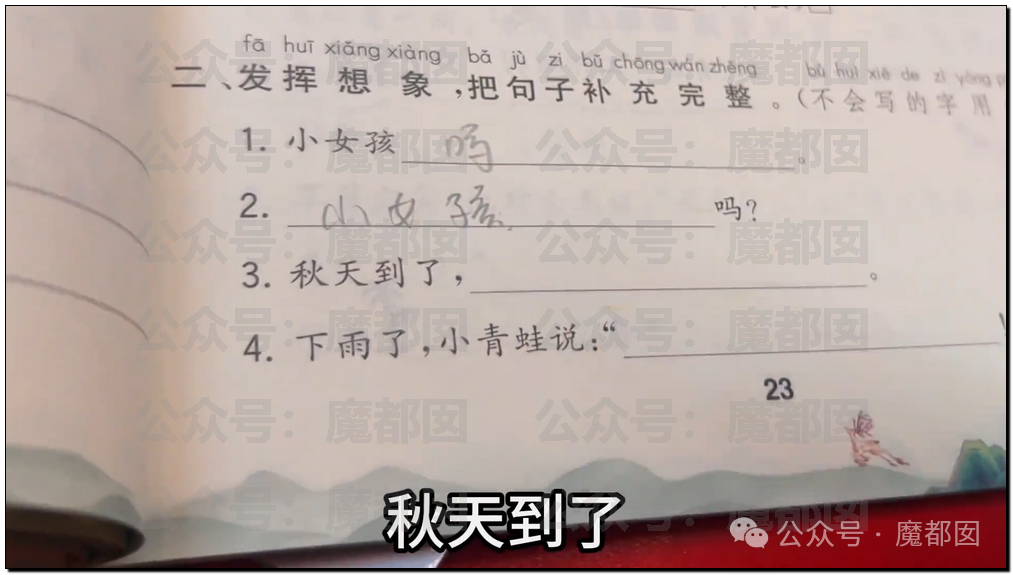 fā huī xiǎng xiàng bǎ jù zi bǔ chōng wán zhěng bú huì xiě de zì yòng
二、发挥想象,把句子补充完整。(不会写的字用
1. 小女孩 吗 。
2. 小女孩 吗?
3. 秋天到了, 。
4. 下雨了,小青蛙说:“
23
秋天到了
公众号·魔都囡
公众号:魔都囡